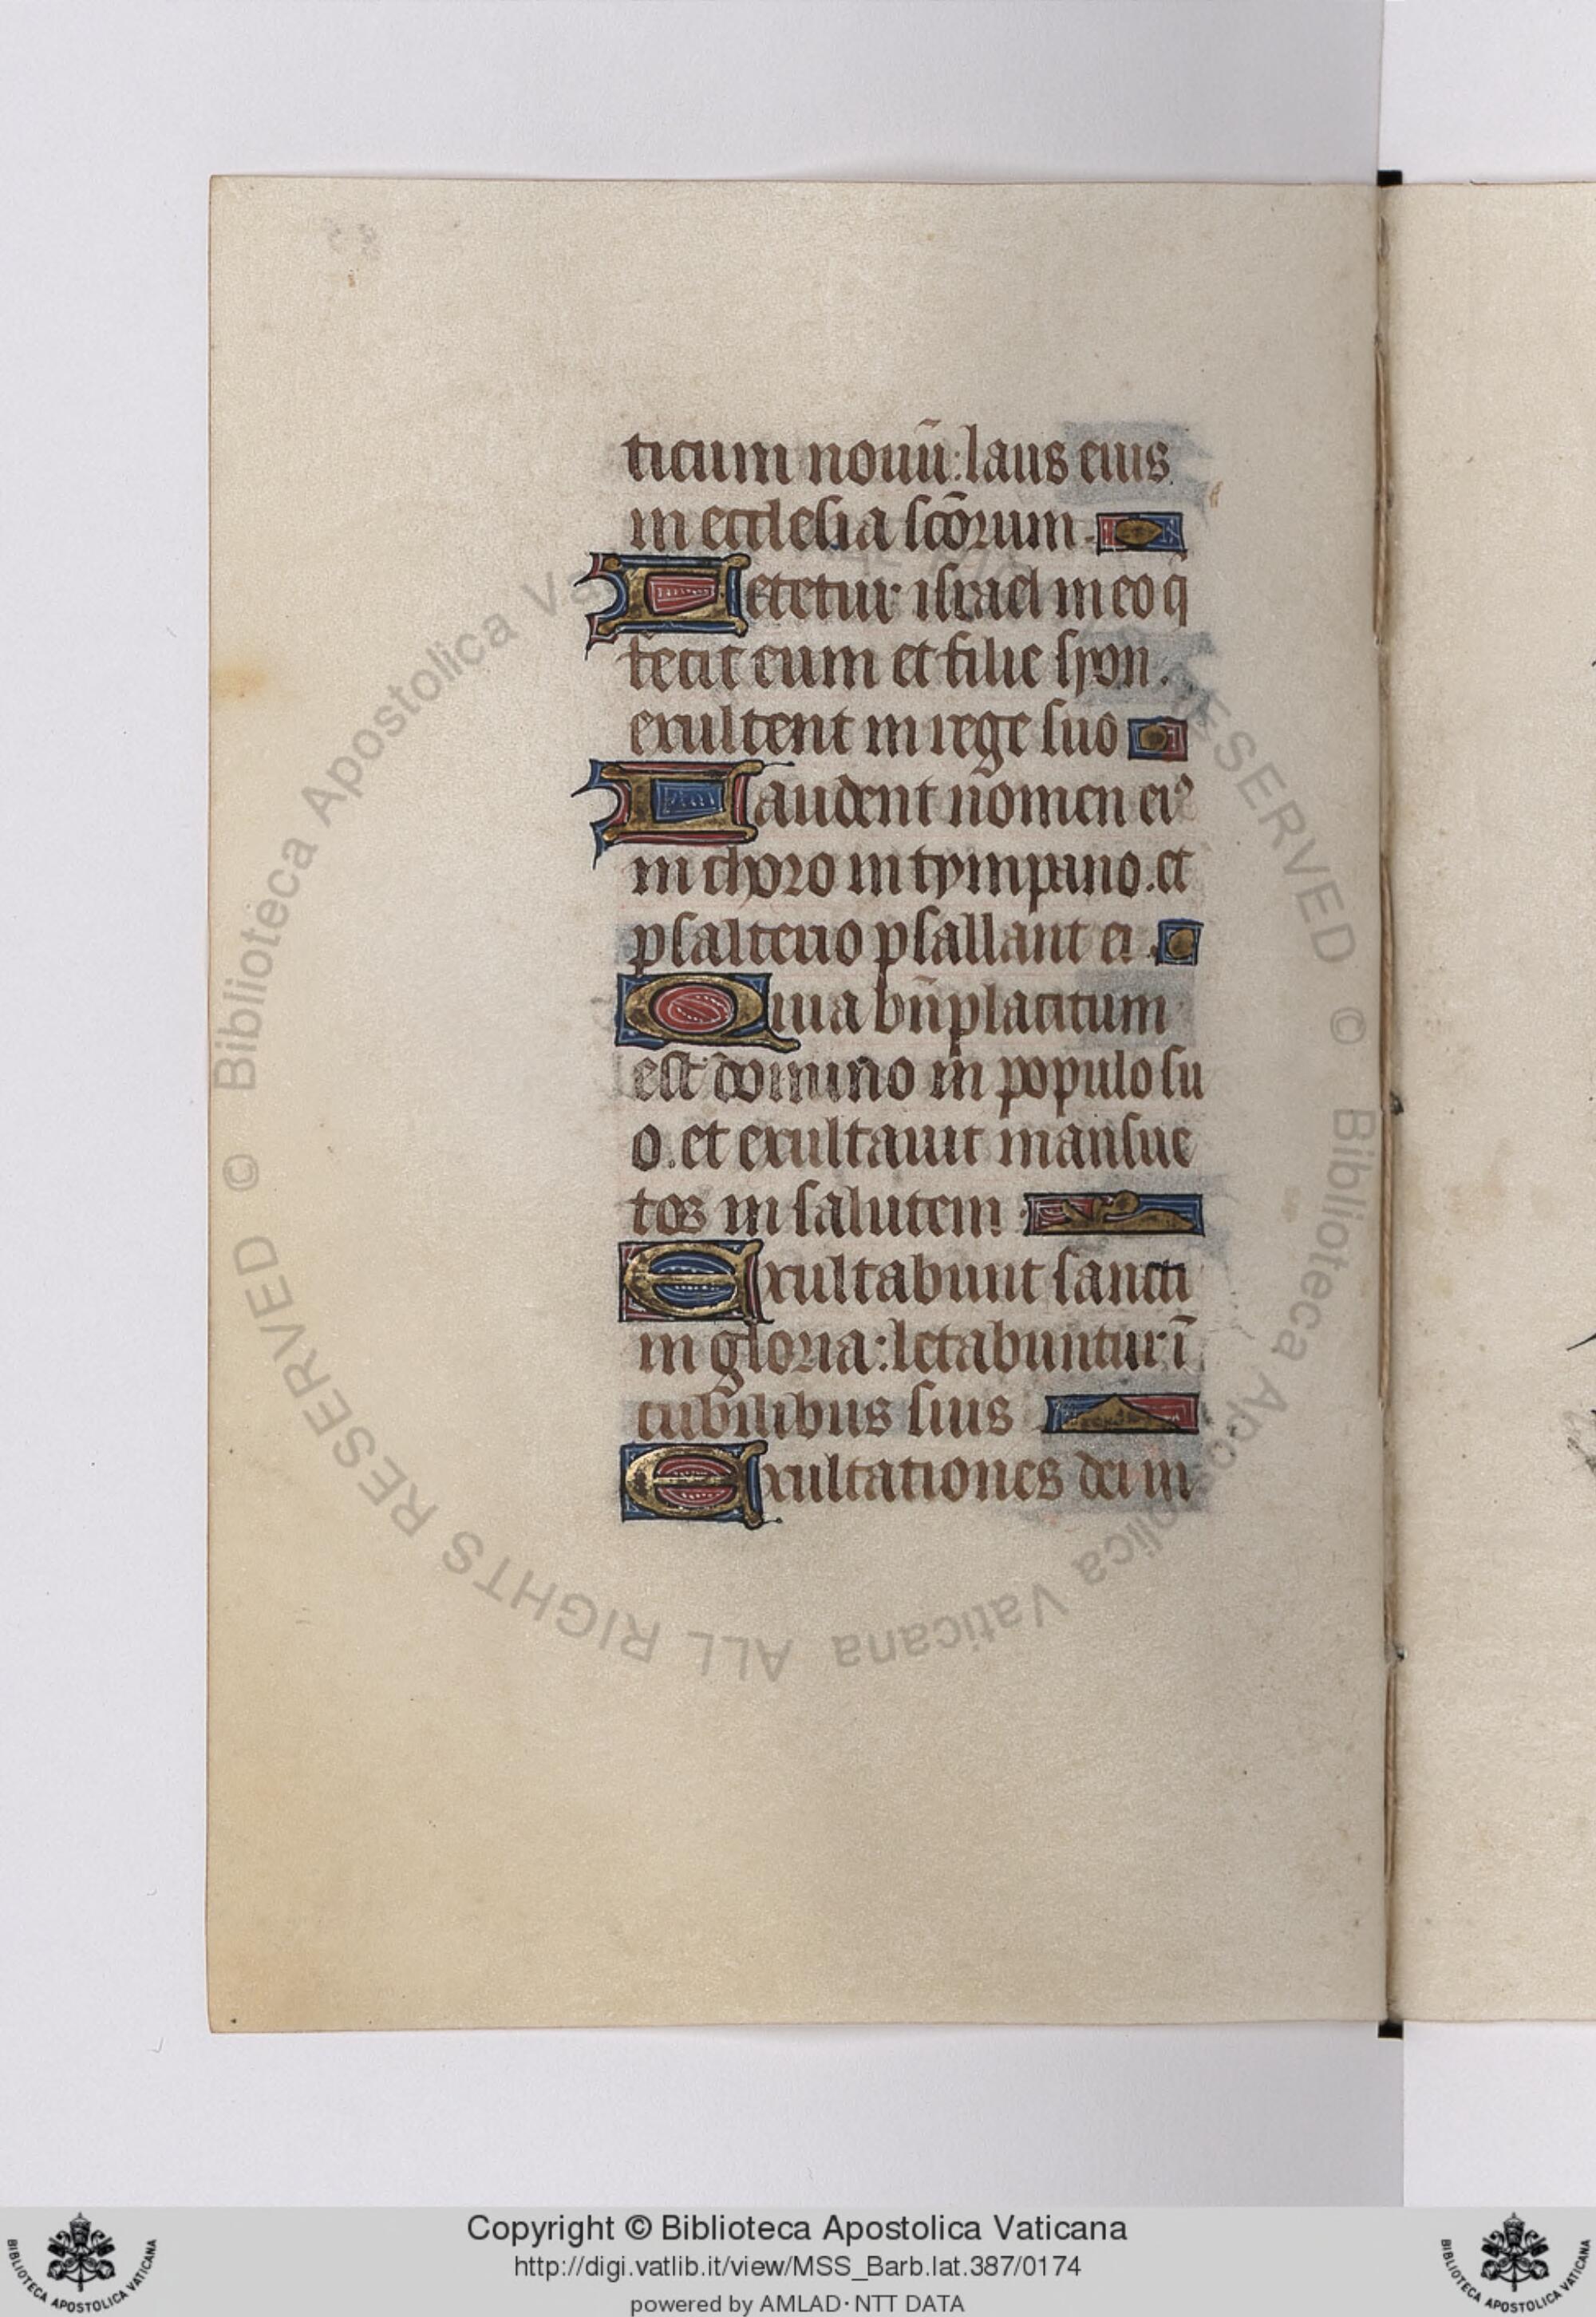 ticum nouū: laus eius
in ecclesia sc̄orum.
Letetur israel in eo q̄
fecit eum et filie syon.
exultent in rege suo
Laudent nomen eiꝰ
in choro in tympano. et
psalterio psallant ei.
Quia bn̄placitum
est domino in populo su
o. et exultauit mansue
tos in salutem.
Exultabunt sancti
in gloria: letabuntur ī
cubilibus suis
Exultationes dei in
© Biblioteca Apostolica Vaticana ALL RIGHTS RESERVED © Biblioteca Apostolica Vaticana ALL RIGHTS RESERVED
BIBLIOTECA APOSTOLICA VATICANA
Copyright © Biblioteca Apostolica Vaticana
http://digi.vatlib.it/view/MSS_Barb.lat.387/0174
powered by AMLAD･NTT DATA
BIBLIOTECA APOSTOLICA VATICANA